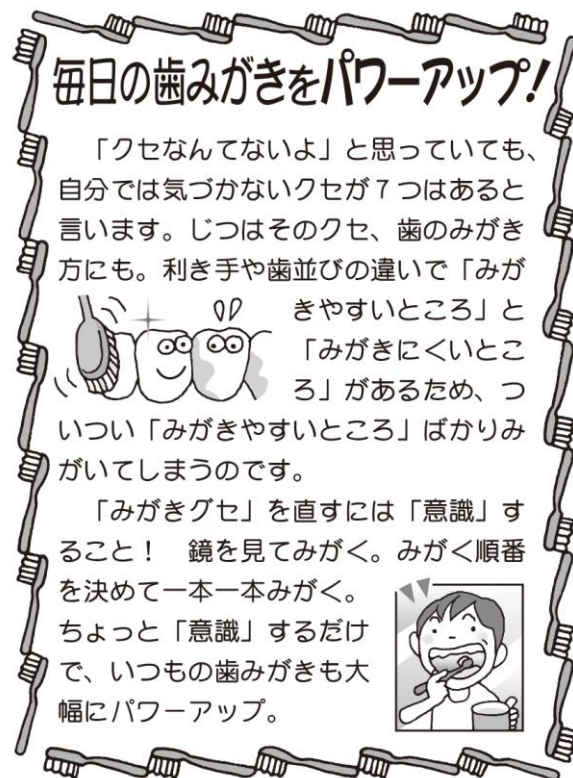 毎日の歯みがきをパワーアップ!
「クセなんてないよ」と思っていても、
自分では気づかないクセが7つはあると
言います。じつはそのクセ、歯のみがき
方にも。利き手や歯並びの違いで「みが
きやすいところ」と
「みがきにくいとこ
ろ」があるため、つ
いつい「みがきやすいところ」ばかりみ
がいてしまうのです。
「みがきグセ」を直すには「意識」す
ること！　鏡を見てみがく。みがく順番
を決めて一本一本みがく。
ちょっと「意識」するだけ
で、いつもの歯みがきも大
幅にパワーアップ。